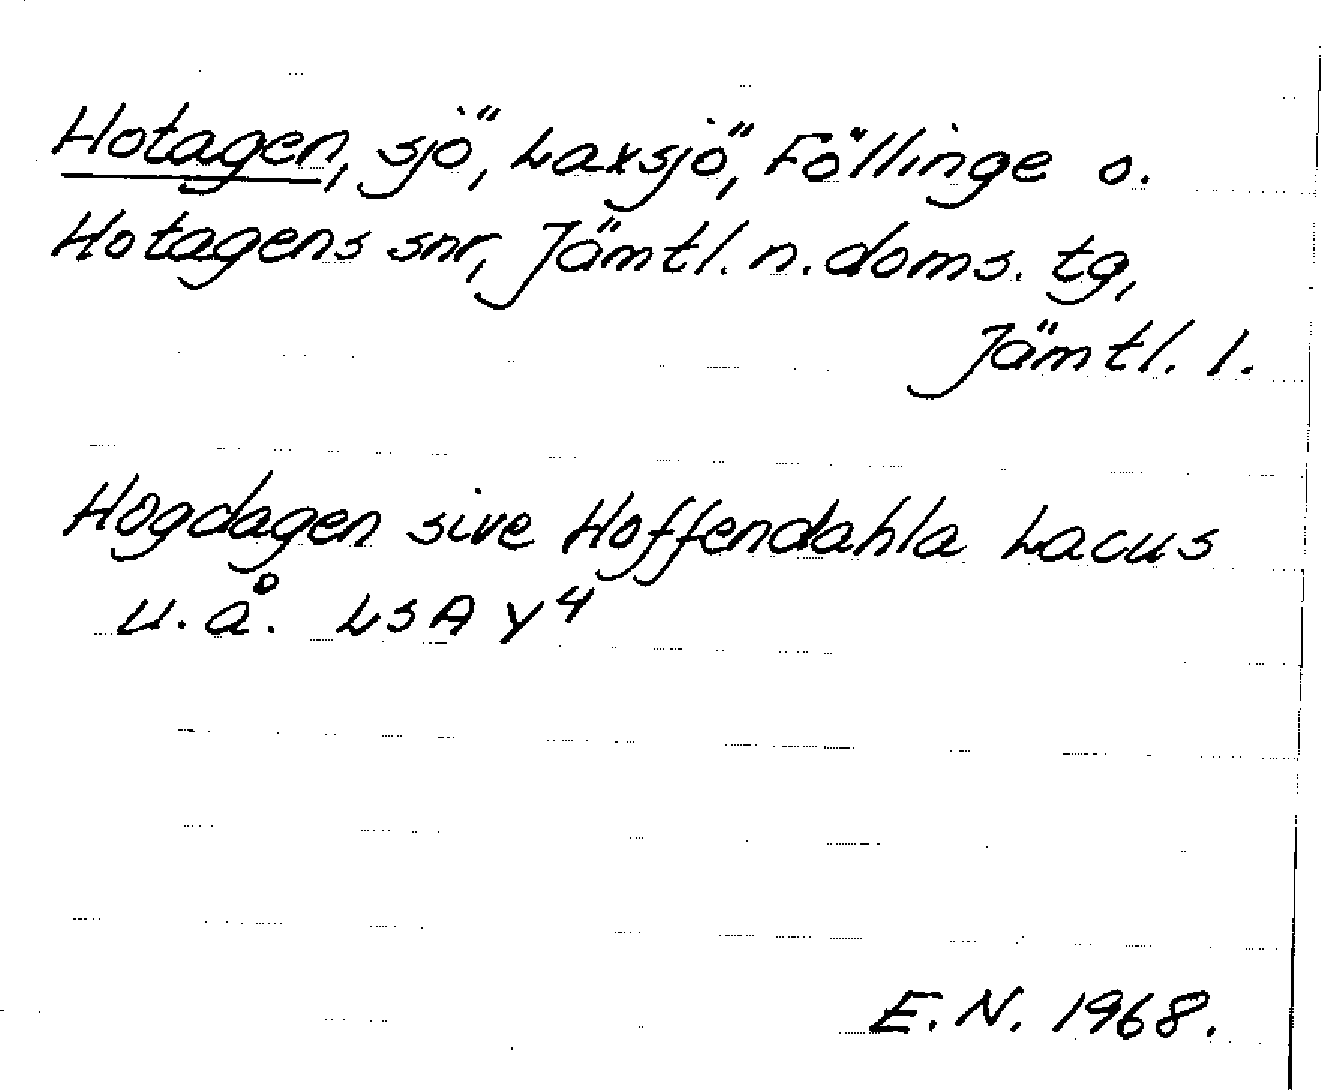 Hotagen, sjö, Laxsjö, Föllinge o.
Hotagens snr, Jämtl. n. doms. tg,
Jämtl. l.
Hogdagen sive Hoffendahla Lacus
u. å. LSA Y4
E.N. 1968.